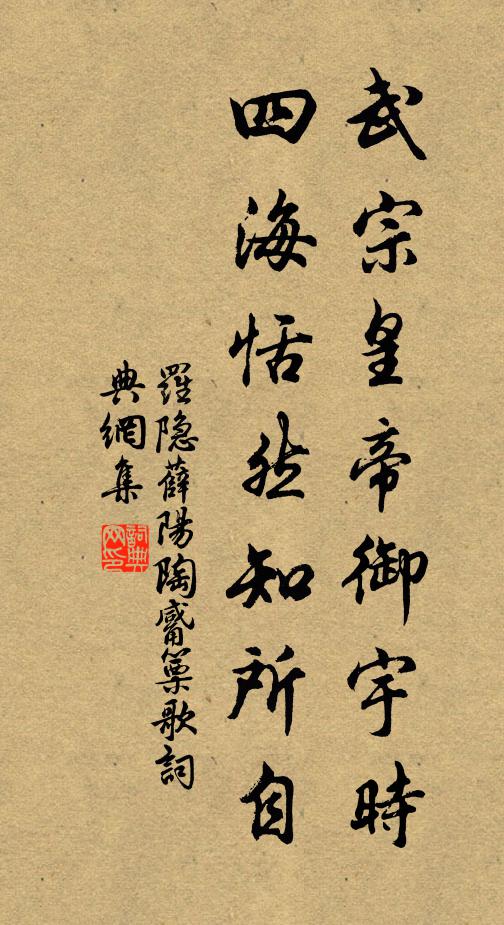 武宗皇帝御宇時
四海恬然知所自
羅隐薛陽陶觱篥歌詞
典網集
詞典網印